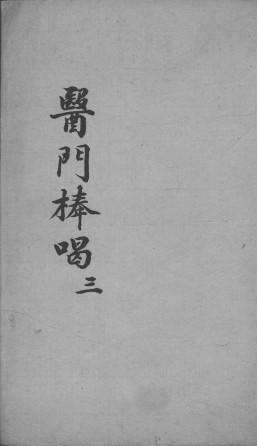 醫門棒喝三